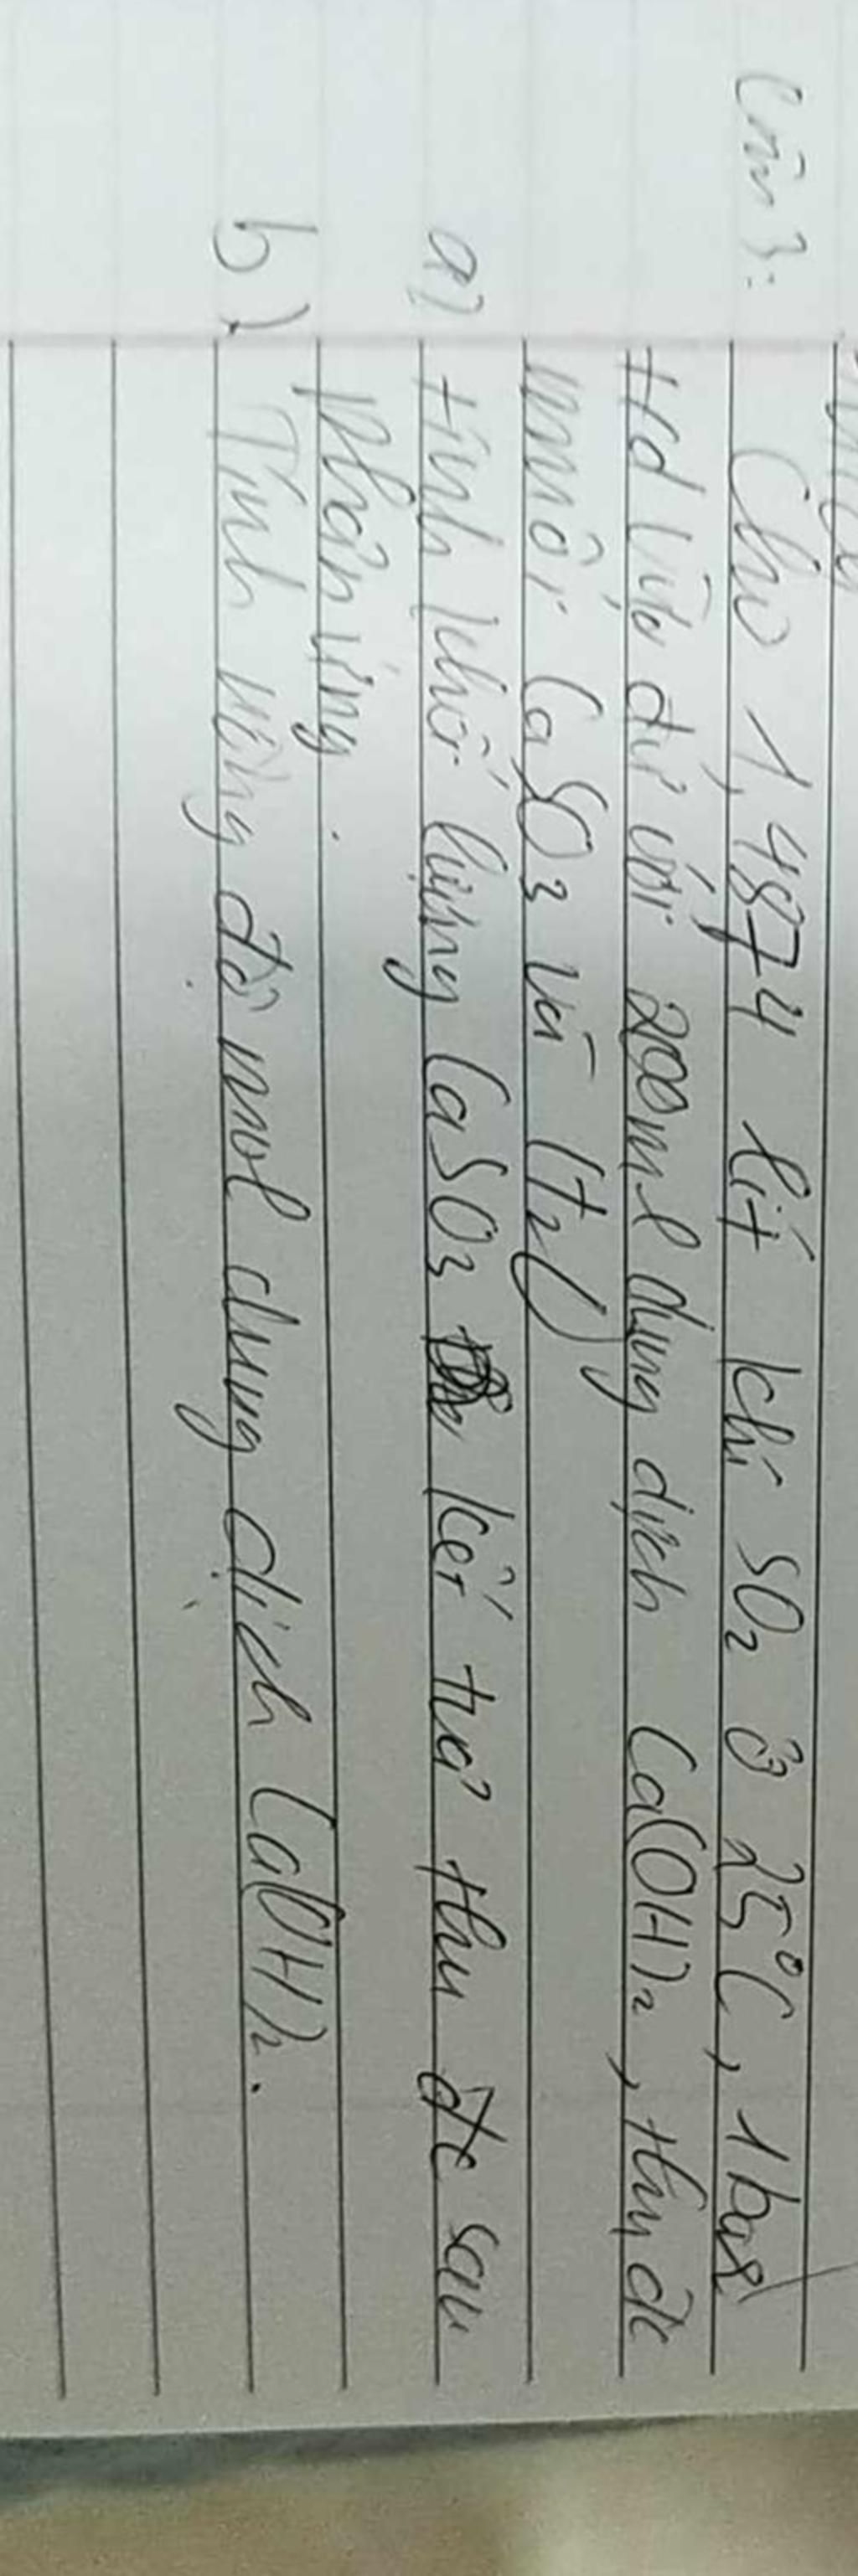 Câu 3:
Cho 1,4874 lít khí SO2 ở 25°C, 1 bar
t/d vừa đủ với 200ml dung dịch Ca(OH)2, thu đc
muối CaSO3 và H2O
a) tính khối lượng CaSO3 kết tủa thu đc sau
phản ứng.
b) Tính nồng độ mol dung dịch Ca(OH)2.